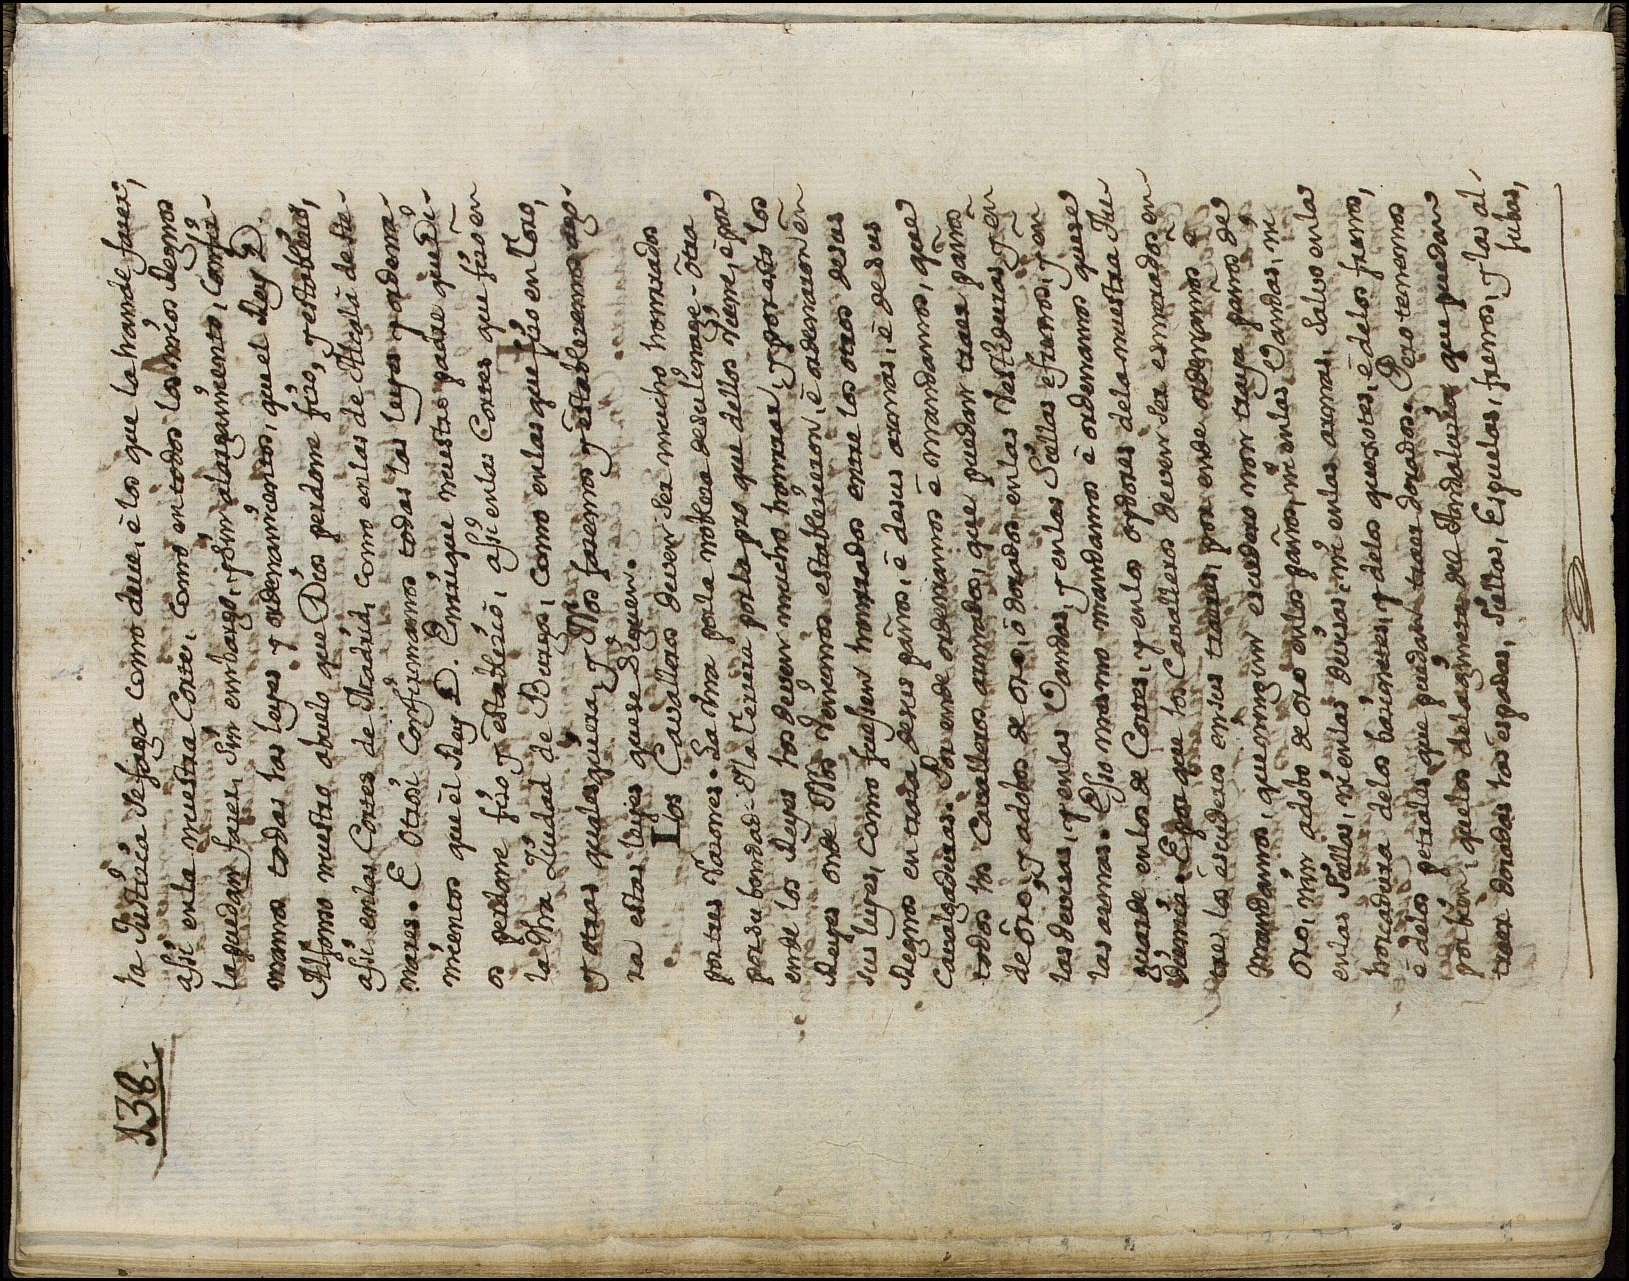 138.
la Justicia se faga como deve, è los que la han de facer,
assi en la nuestra Corte, como en todos los mios Regnos
la puedan facer sin embargo, y sin alargamiento, Confir-
mamos todas las leyes y ordenamientos, que el Rey D.
Alfonso nuestro abuelo que Dios perdone fizo, y establecio,
assi en las Cortes de Madrid, como en las de Alcalà de fe-
nares. E Otrosi Confirmamos todas las leyes y ordena-
mientos que el Rey D. Enrique nuestro padre que Di-
os perdone fizo y estableciò, assi en las Cortes que fizo en
la Nra Ziudad de Burgos, como en las que fizo en Toro,
y otras qualesquiera, y Nos facemos y establecemos ago-
ra estas leyes que se Siguen.
Los Cavalleros deven ser mucho honrrados
por tres Raçones. La Vna por la nobleza de su linage. Otra
por su bondad. La Terzera por la pro que dellos viene, è por
ende los Reyes los deven mucho honrrar, y por esto los
Reyes onde Nos venimos establecieron, è ordenaron en
sus leyes, como fuessen honrrados entre los otros de sus
Regnos en traer de sus paños, è de sus armas, è de sus
cavalgaduras. Por ende ordenamos è mandamos, que
todos los Cavalleros armados, que puedan traer paños
de oro, y adobos de oro, ò dorados en las Vestiduras, y en
las devisas, y en las Vandas, y en las Sillas è frenos, y en
las armas. Esso mesmo mandamos è ordenamos que se
guarde en los de Cortes, y en los oydores de la nuestra Au-
diencia. E por que los Cavalleros deven ser esmerados en-
tre los escuderos en sus traeres, por ende ordenamos è
Mandamos, que ningun escudero non traya panos de
oro, nin adobo de oro en los paños, ni en las Vandas, ni
en las Sillas, ni en las devisas, ni en las armas, Salvo en la
horcadura delos bacinetes, y delos quexotes, è delos frenos,
è delos petrales que puedan traer dorados. Pero tenemos
por bien, que los dela ginera del Andalucia que puedan
traer doradas las espadas, Sillas, Espuelas, frenos, y las al-
jubas,